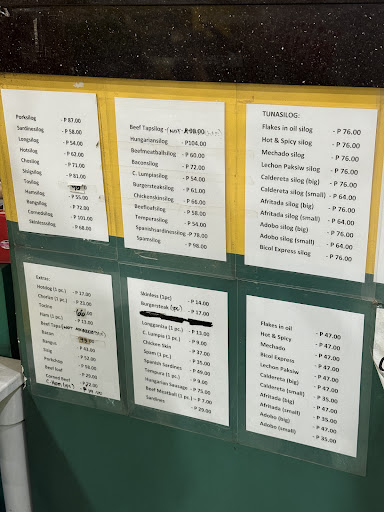 Porksilog - P 87.00
Sardinesilog - P 58.00
Longsilog - P 54.00
Hotsilog - P 62.00
Chosilog - P 71.00
Sisigsilog - P 81.00
Tosilog
Hamsilog - P 55.00
Bangsilog - P 72.00
Cornedsilog - P 101.00
Skinlesssilog - P 68.00
Beef Tapsilog - P 98.00
Hungariansilog - P104.00
Beefmeatballsilog - P 60.00
Baconsilog - P 72.00
C. Lumpiasilog - P 54.00
Burgersteaksilog - P 61.00
Chickenskinsilog - P 66.00
Beefloafsilog - P 58.00
Tempurasilog - P 54.00
Spanishsardinessilog - P 78.00
Spamsilog - P 98.00
TUNASILOG:
Flakes in oil silog - P 76.00
Hot & Spicy silog - P 76.00
Mechado silog - P 76.00
Lechon Paksiw silog - P 76.00
Caldereta silog (big) - P 76.00
Caldereta silog (small) - P 64.00
Afritada silog (big) - P 76.00
Afritada silog (small) - P 64.00
Adobo silog (big) - P 76.00
Adobo silog (small) - P 64.00
Bicol Express silog - P 76.00
Extras:
Hotdog (1 pc.) - P 17.00
Chorizo (1 pc.) - P 23.00
Tocino 66
Ham (1 pc.) - P 13.00
Beef Tapa
Bacon
Bangus - P 43.00
Sisig - P 52.00
Porkchop - P 58.00
Beef loaf - P 29.00
Corned Beef - P 72.00
Skinless (1pc) - P 14.00
Burgersteak (pc) - P 17.00
Longganisa (1 pc.) - P 13.00
C. Lumpia (1 pc.) - P 9.00
Chicken Skin - P 37.00
Spam (1 pc.) - P 35.00
Spanish Sardines - P 49.00
Tempura (1 pc.) - P 9.00
Hungarian Sausage - P 75.00
Beef Meatball (1 pc.) - P 7.00
Sardines - P 29.00
Flakes in oil - P 47.00
Hot & Spicy - P 47.00
Mechado - P 47.00
Bicol Express - P 47.00
Lechon Paksiw - P 47.00
Caldereta (big) - P 47.00
Caldereta (small) - P 35.00
Afritada (big) - P 47.00
Afritada (small) - P 35.00
Adobo (big) - P 47.00
Adobo (small) - P 35.00